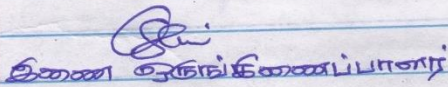 இணை ஒருங்கிணைப்பாளர்